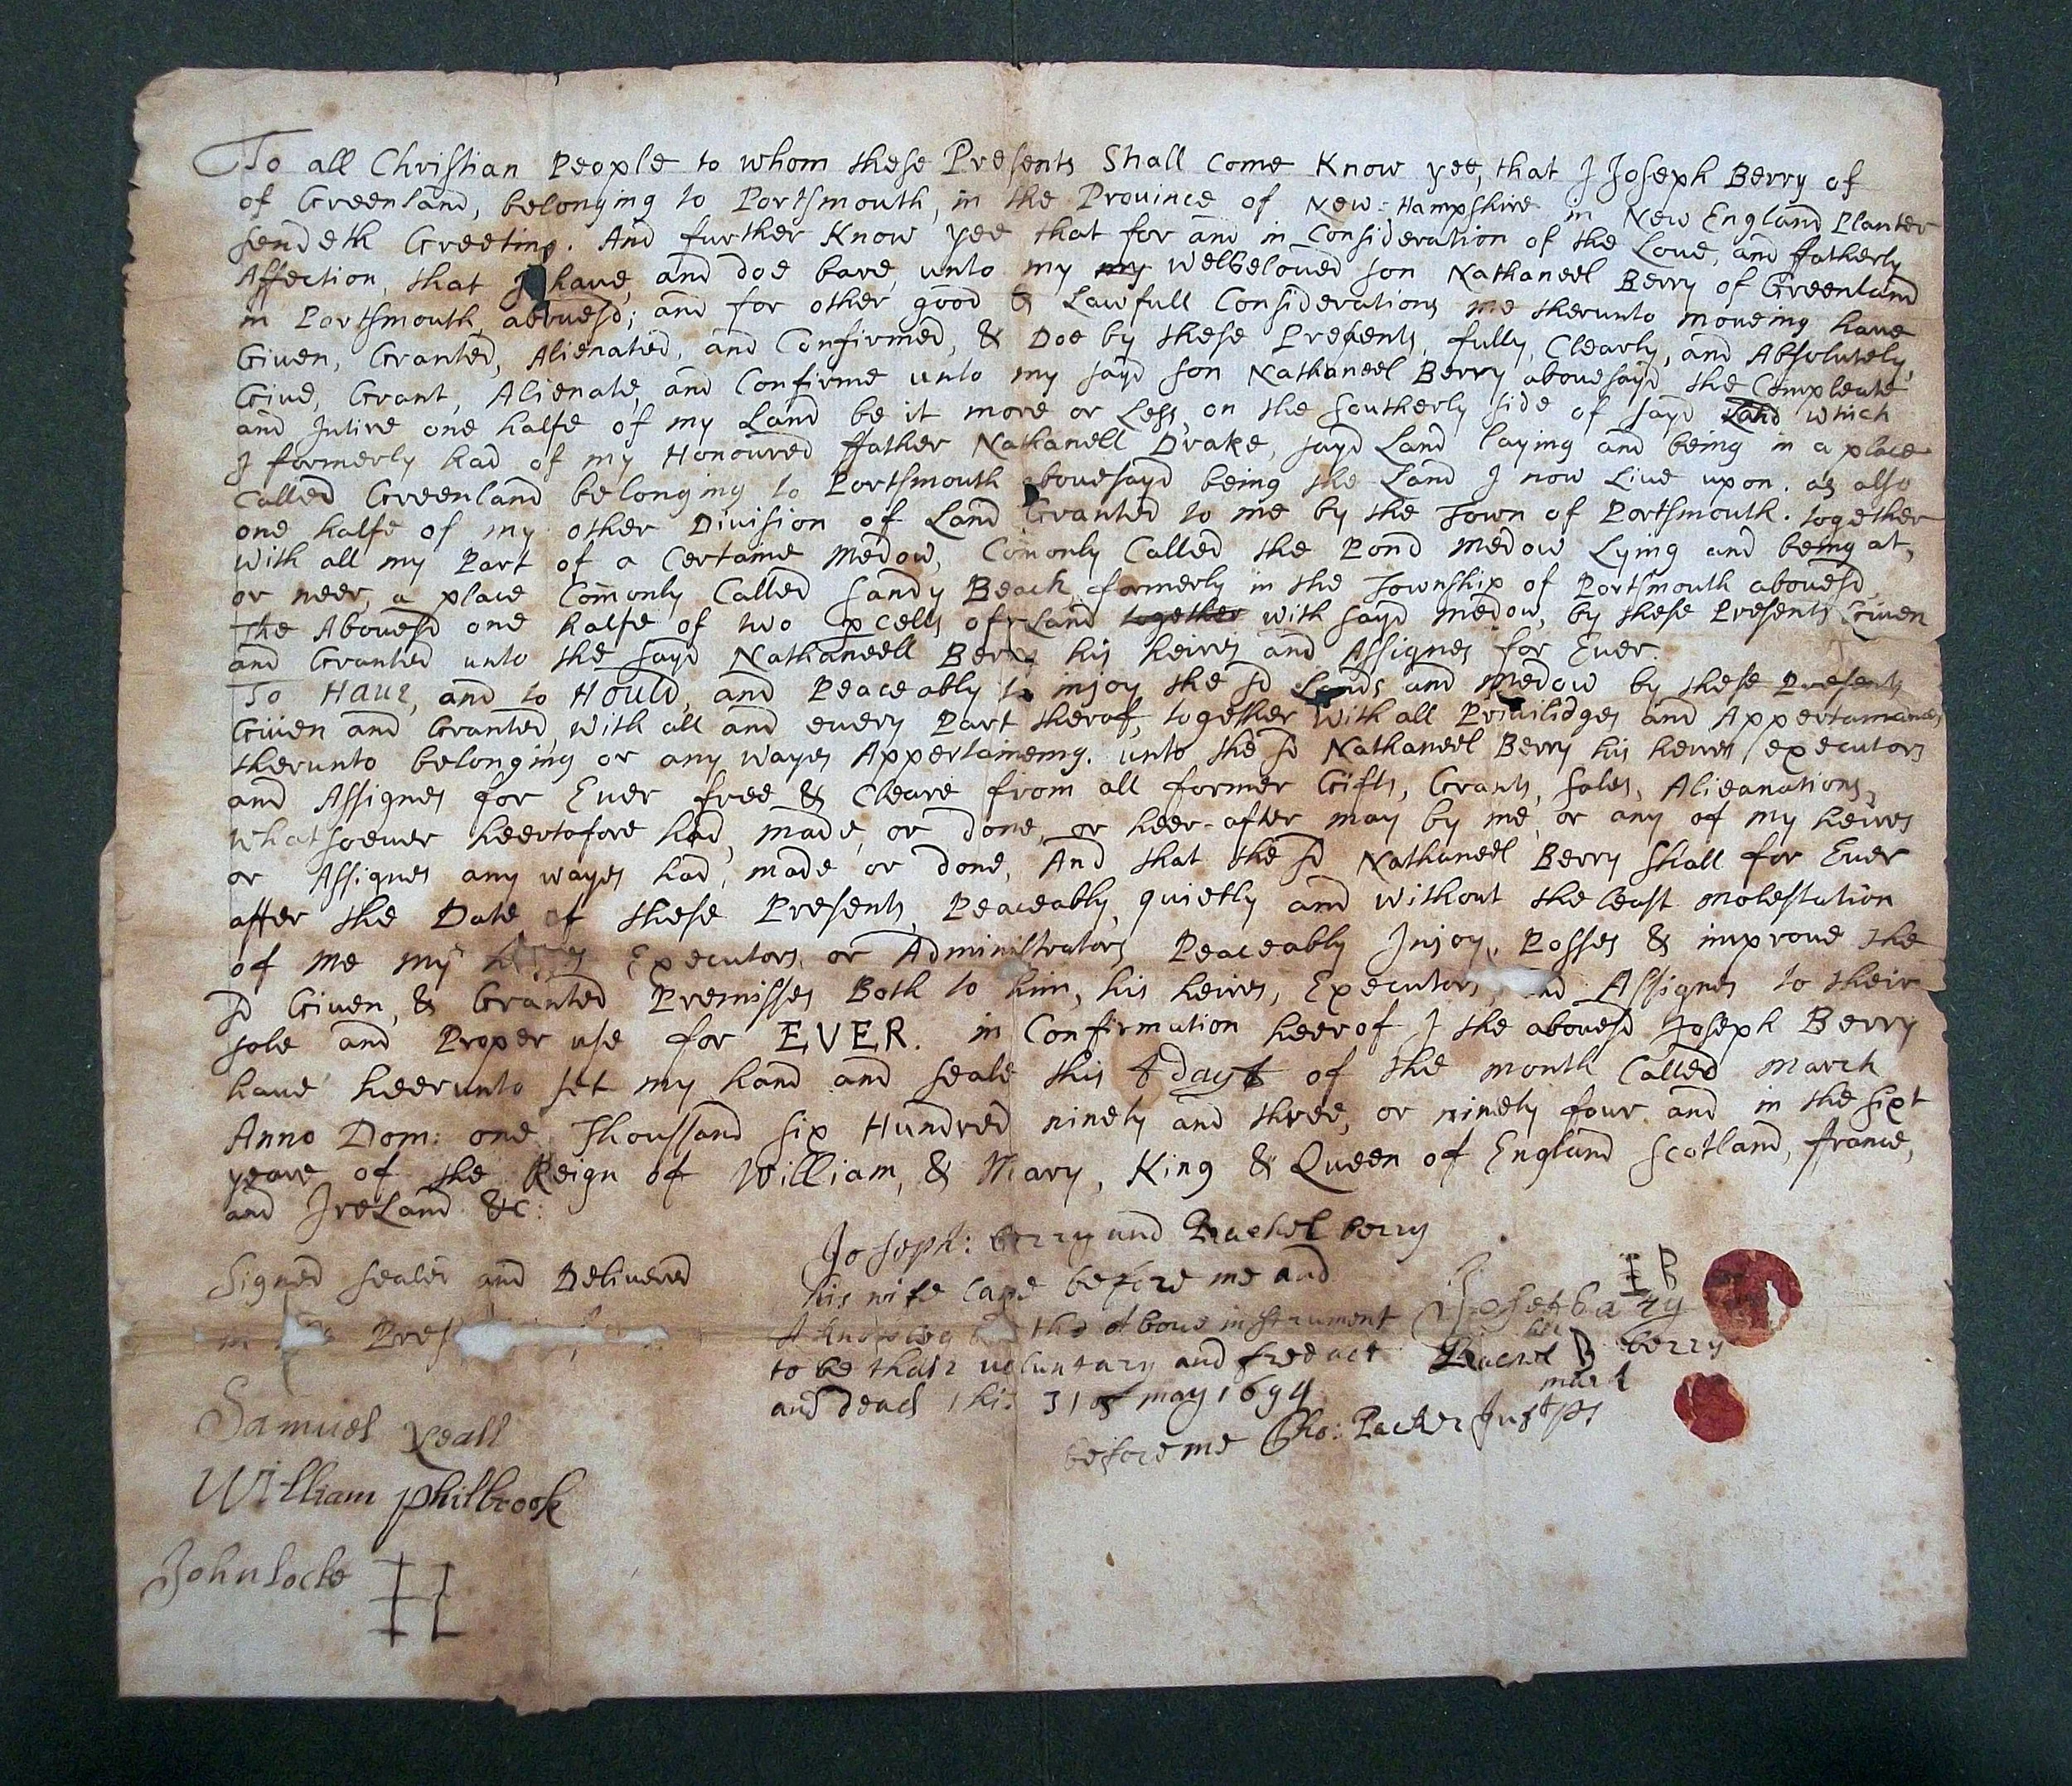 To all Christian People to whom these Presents Shall Come Know yee, that I Joseph Berry of
of Greenland, belonging to Portsmouth, in the Prouince of New=Hampshire in New England Planter
sendeth Greeting. And further Know yee that for and in Consideration of the Loue, and ffatherly
Affection, that I haue, and doe bare, unto my my welbeloued son Nathaneel Berry of Greenland
in Portsmouth, abouesd; and for other good & Lawfull Considerations me therunto moueing haue
Giuen, Granted, Alienated, and Confirmed, & Doe by these Presents, fully, Clearly, and Absolutely,
Giue, Grant, Alienate, and Confirme unto my sayd son Nathaneel Berry abouesayd the Compleate
and Intire one halfe of my Land be it more or Less, on the Southerly side of sayd Land which
I formerly had of my Honoured ffather Nathanell Drake, sayd Land laying and being in a place
Called Greenland belonging to Portsmouth abouesayd being the Land I now Liue upon. as also
one halfe of my other Diuision of Land Granted to me by the Town of Portsmouth. together
with all my Part of a Certaine Medow, Comonly Called the Pond Medow Lying and being at,
or neer, a place Comonly Called Sandy Beach, formerly in the Township of Portsmouth abouesd,
The Abouesd one halfe of two pcells of Land together with sayd medow, by these Presents Giuen
and Granted unto the sayd Nathaneell Berry his heires and Assignes for Euer.
To Haue, and to Hould, and Peaceably to injoy the sd Lands and Medow by these Presents
Giuen and Granted, with all and euery Part therof, together with all Priuilidges and Appertainances
therunto belonging or any wayes Appertaineing. unto the sd Nathaneel Berry his heires executors
and Assignes for Euer free & Cleare from all former Gifts, Grants, sales, Alieanations,
whatsoeuer heertofore had, made, or done, or heer-after may by me, or any of my heires
or Assignes any wayes had, made or done, And that the sd Nathaneel Berry Shall for Euer
after the Date of these Presents, Peaceably, quietly and without the least molestation
of me my heires Executors, or Administrators Peaceably Injoy, Posses & improue the
sd Giuen, & Granted Premisses Both to him, his heires, Executors, and Assignes to their
sole and Proper use for EVER. in Confirmation heerof I the abouesd Joseph Berry
haue heerunto set my hand and seale this day of the month Called march
Anno Dom: one Thoussand six Hundred ninety and three, or ninety four and in the sixt
yeare of the Reign of William, & Mary, King & Queen of England Scotland, france,
and IreLand &c:
Joseph: berry and Rachel berry
his wife came before me and
Aknowleg the aboue instrument
to be thair voluntary and free act
and deed this 31 of may 1694
before me Tho: Packer Just ps
Signed sealed and Deliuered
in Pres
Samuel Neall
William Philbrook
John locke
IB
her
Rachel B berry
mark